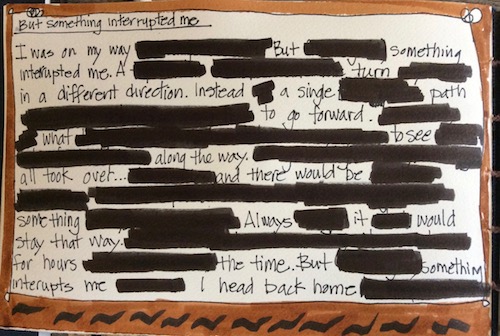 But something interrupted me
I was on my way But something
interrupted me. A turn
in a different direction. Instead a single path
to go forward.
what to see
along the way.
all took over... and there would be
something Always it would
stay that way.
for hours the time. But something
interupts me I head back home